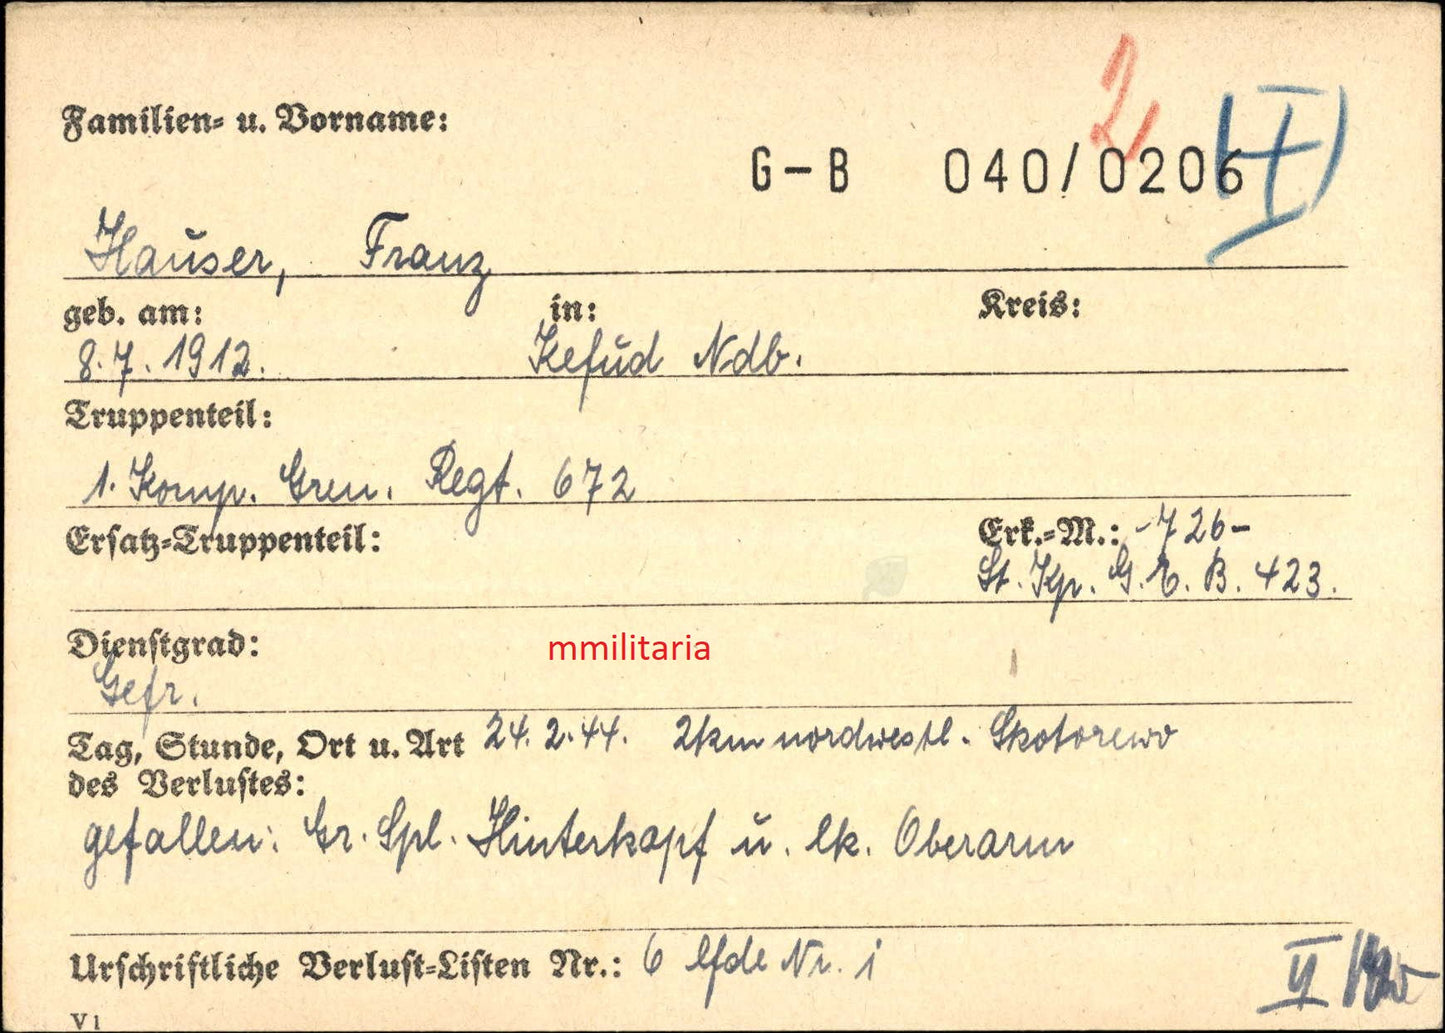 2
(I)
Familien- u. Vorname:
G-B 040/0206
Hauser, Franz
geb. am: in: Kreis:
8.7.1912. Kefüd Ndb.
Truppenteil:
1. Komp. Gren. Regt. 672
Ersatz-Truppenteil: Erk.-M.: -726-
St. Kp. G. E. B. 423.
Dienstgrad:
mmilitaria
Gefr.
Tag, Stunde, Ort u. Art 24.2.44. 2km nordwestl. Skotorewo
des Verlustes:
gefallen: Gr. Spl. Hinterkopf u. lk. Oberarm
Urschriftliche Verlust-Listen Nr.: 6 lfde Nr. 1
II
V 1